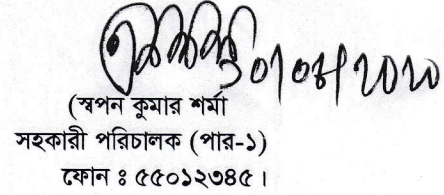 ০১/০৪/২০২০
(স্বপন কুমার শর্মা
সহকারী পরিচালক (পার-১)
ফোন ঃ ৫৫০১২৩৪৫।